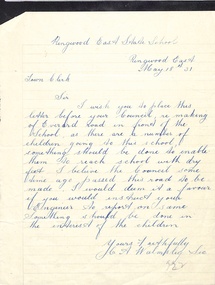 Ringwood East State School
Ringwood East
May 18th 31
Town Clerk
Sir
I wish you to place this
letter before your Council, re making
of Everard Road in front of the
School as there are a number of
children going to this school,
something should be done to enable
them to reach school with dry
feet. I believe the Council some
time ago passed this road to be
made. I would deem it a favour
if you would instruct your
Engineer to report on same
something should be done in
the interest of the children
Yours Faithfully